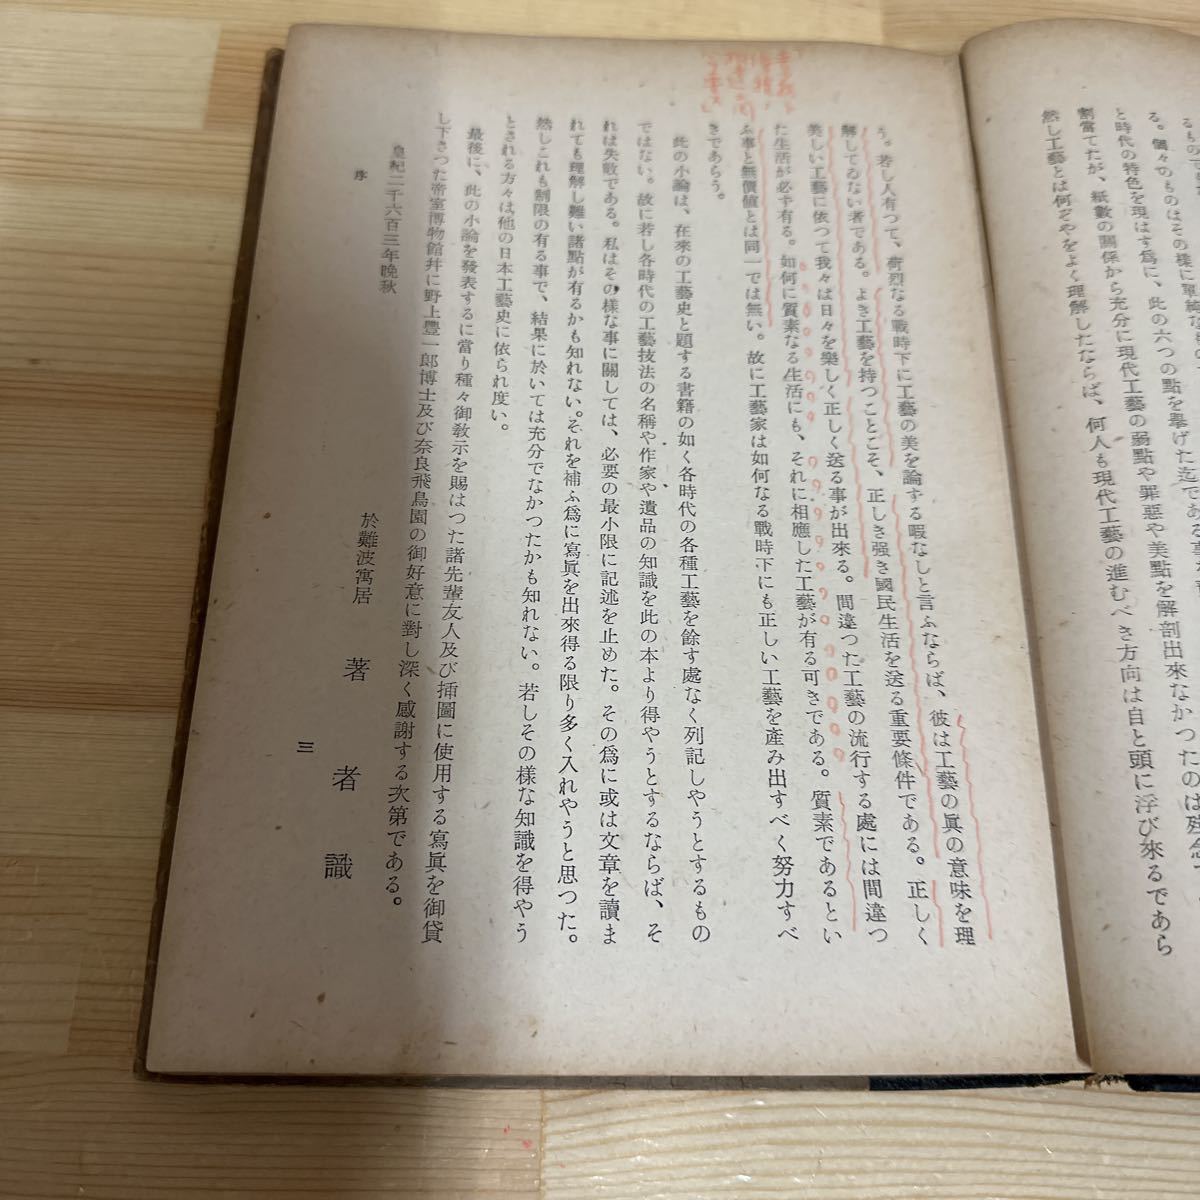 と時代の特色を現はす爲に、此の六つの點を擧げた迄である事
割當てたが、紙數の關係から充分に現代工藝の弱點や罪惡や美點を解剖出來なかつたのは殘念
然し工藝とは何ぞやをよく理解したならば、何人も現代工藝の進むべき方向は自と頭に浮び來るであら
う。若し人有つて、苛烈なる戰時下に工藝の美を論ずる暇なしと言ふならば、彼は工藝の眞の意味を理
解してゐない者である。よき工藝を持つことこそ、正しき强き國民生活を送る重要條件である。正しく
美しい工藝に依つて我々は日々を樂しく正しく送る事が出來る。間違つた工藝の流行する處には間違つ
た生活が必ず有る。如何に質素なる生活にも、それに相應した工藝が有る可きである。質素であるとい
ふ事と無價値とは同一では無い。故に工藝家は如何なる戰時下にも正しい工藝を產み出すべく努力すべ
きであらう。
此の小論は、在來の工藝史と題する書籍の如く各時代の各種工藝を餘す處なく列記しやうとするもの
ではない。故に若し各時代の工藝技法の名稱や作家や遺品の知識を此の本より得やうとするならば、そ
れは失敗である。私はその樣な事に關しては、必要の最小限に記述を止めた。その爲に或は文章を讀ま
れても理解し難い諸點が有るかも知れない。それを補ふ爲に寫眞を出來得る限り多く入れやうと思つた。
然しこれも制限の有る事で、結果に於いては充分でなかつたかも知れない。若しその樣な知識を得やう
とされる方々は他の日本工藝史に依られ度い。
最後に、此の小論を發表するに當り種々御敎示を賜はつた諸先輩友人及び揷圖に使用する寫眞を御貸
し下さつた帝室博物館幷に野上豐一郎博士及び奈良飛鳥園の御好意に對し深く感謝する次第である。
皇紀二千六百三年晩秋
於難波寓居
著者識
序
三